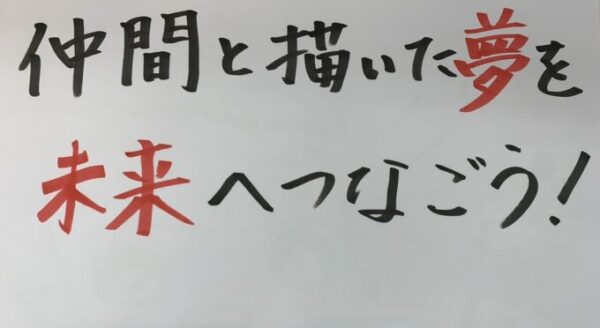 仲間と描いた夢を
未来へつなごう!